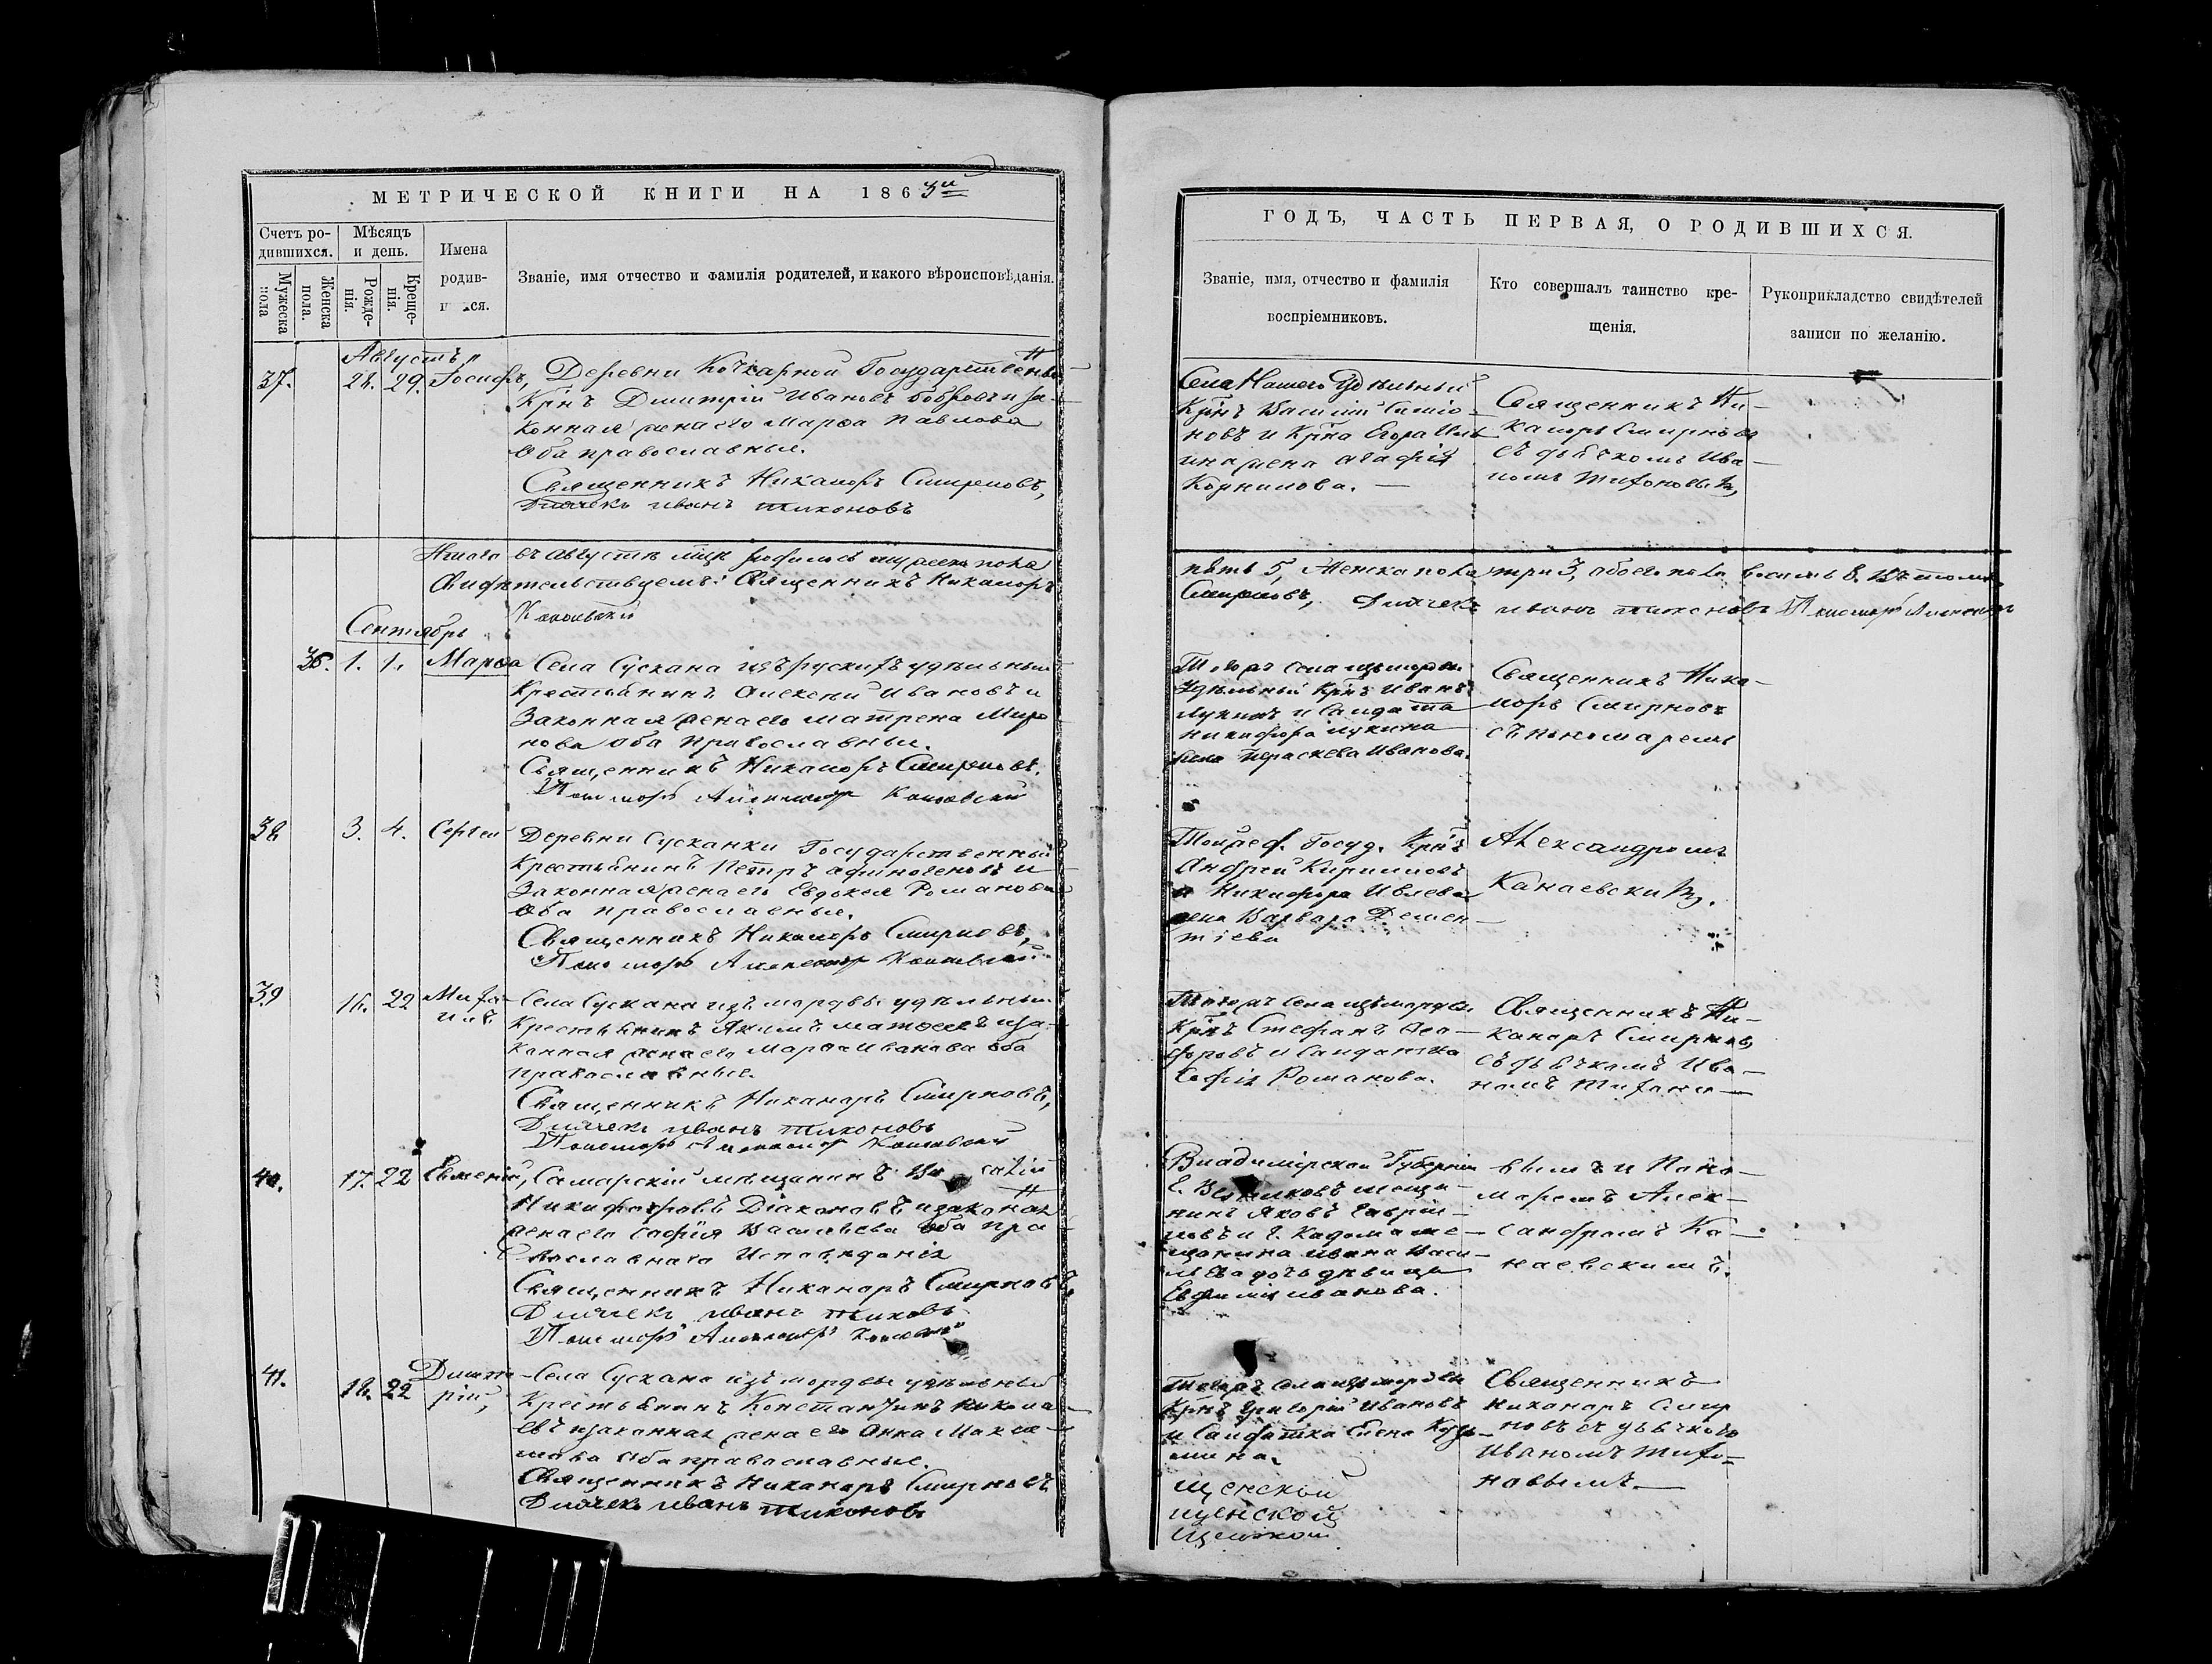 МЕТРИЧЕСКОЙ КНИГИ НА 1863й
Счетъ ро-
дившихся.
Мѣсяцъ
и день.
Мужеска
пола
Женска
пола.
Рожде-
нія.
Креще-
нія.
Имена
родив-
ся.
Званіе, имя отчество и фамилія родителей, и какого вѣроисповѣданія.
Августъ
37. 28. 29. Іосифъ, Деревни Кочкарной Государственный
Крнъ Дмитрій Ивановъ и за-
конная жена его Марѳа Павлова
Оба православные.
Священникъ Никаноръ Смирновъ,
Дьячекъ Иванъ Тихоновъ
Итого въ Августѣ мцѣ родилось мужеска пола
Свидѣтельствуемъ: Священникъ Никаноръ
Канаевскій
Сентябрь
36. 1. 1. Марѳа Села Сускана изъ русскихъ удѣльный
Крестьянинъ Алексѣй Ивановъ и
Законная жена его Матрена Миро
нова оба Православные.
Священникъ Никаноръ Смирновъ.
Пономарь Александръ Канаевскій
38 3. 4. Сергѣй Деревни Сусканки Государственный
Крестьянинъ Петръ Афиногеновъ и
Законная жена его Евдокея Романова
Оба православные.
Священникъ Никаноръ Смирновъ,
Пономарь Александръ Канаевскій
39 16. 22 Миха-
илъ Села Сускана изъ мордвы удѣльный
Крестьянинъ Акимъ Матвѣевъ и за-
конная жена его Марѳа Иванова оба
православные.
Священникъ Никаноръ Смирновъ,
Дьячекъ Иванъ Тихоновъ
Пономарь Александръ Канаевскій
40. 17. 22 Евгеній, Самарскій мѣщанинъ
Никифоровъ Діаконовъ и законная
жена его Софія Васильева оба пра
вославнаго Исповѣданія
Священникъ Никаноръ Смирновъ,
Дьячекъ Иванъ Тиховъ
Пономарь Александръ
41. 18. 22 Димит
рій, Села Сускана изъ мордвы удѣльный
Крестьянинъ Константинъ Никола
евъ и законная жена его Анна Макси
мова Оба православные.
Священникъ Никаноръ Смирновъ
Дьячекъ Иванъ Тихоновъ
ГОДЪ, ЧАСТЬ ПЕРВАЯ, О РОДИВШИХСЯ.
Званіе, имя, отчество и фамилія
воспріемниковъ.
Кто совершалъ таинство кре-
щенія.
Рукоприкладство свидѣтелей
записи по желанію.
Села Нашего Удѣльный
Крнъ Василій Симіо-
новъ и Крна Егора Иль
ина жена Агафія
Корнилова.
Священникъ Ни-
каноръ Смирновъ
съ дьячкомъ Ива-
номъ Тихоновымъ
пять 5, Женска пола три 3, обоего пола восемь 8. Въ томъ
Смирновъ, Дьячекъ Иванъ Тихоновъ Пономарь Александръ
Тогожъ села изъ мордвы
Удѣльный Крнъ Иванъ
Лукинъ и Солдата
Никифора Лукина
жена Параскева Иванова.
Священникъ Ника-
норъ Смирновъ
съ пономаремъ
Тойже д. Госуд. Крнъ
Андрей Кириловъ
и Никифора Ивлева
жена Варвара Демен-
тіева
Александромъ
Канаевскимъ.
Тогожъ села изъ мордвы
Крнъ Стефанъ
форовъ и Солдатка
Софія Романова.
Священникъ Ни-
каноръ Смирновъ
съ дьячкомъ Ива-
номъ Тихоно-
Владимірской Губерніи
мѣща-
нинъ Яковъ Гаврій-
ловъ и Г. Кадома мѣ-
щанина Ивана Васи-
льева дочь дѣвица
Евфимія Иванова.
вымъ и Поно-
маремъ Алек-
сандромъ Ка-
наевскимъ.
Тогожъ села изъ мордвы
Крнъ Григорій Ивановъ
и Солдатка Елена Кузь-
мина.
Священникъ
Никаноръ Смир
новъ съ дьячкомъ
Иваномъ Тихо-
новымъ
щенской
щенской
щенской